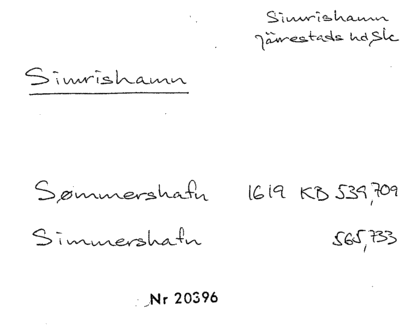 Simrishamn
Järrestads hd, Sk
Simrishamn
Sømmershafn 1619 KB 539,709
Simmershafn 565,733
Nr 20396